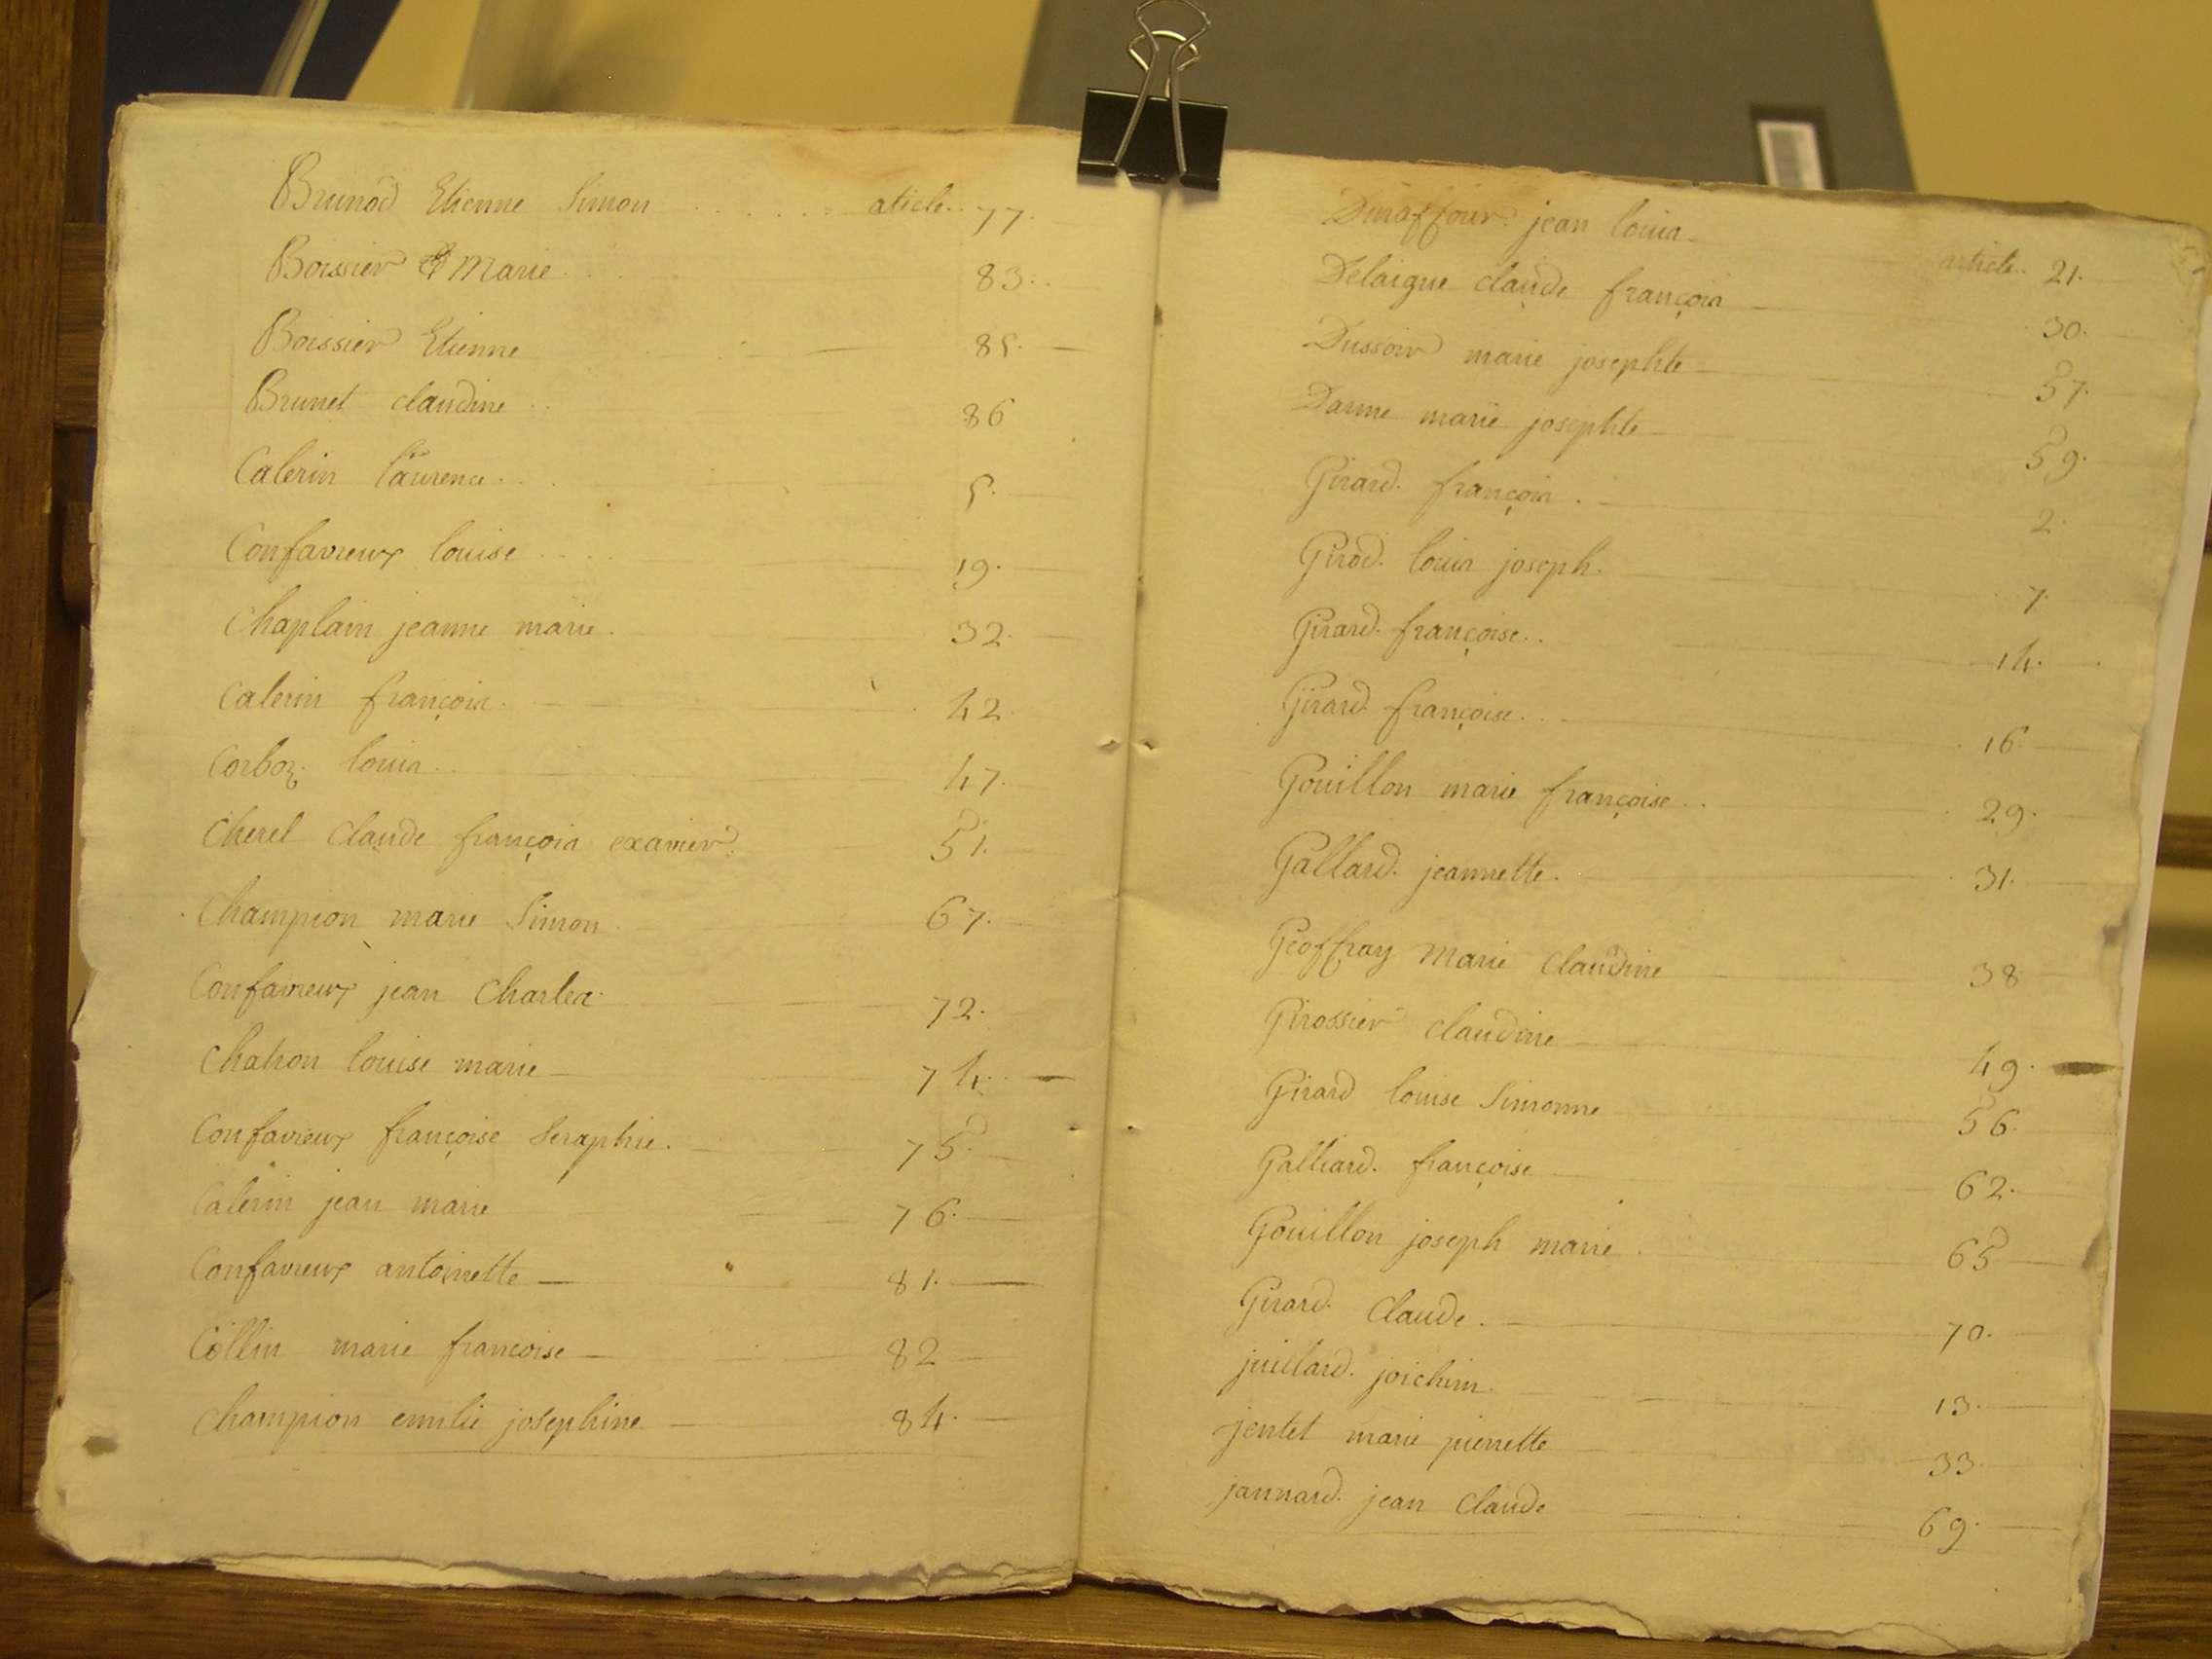 Brunod Etienne Simon ...... aticle.. 77.
Boissier Marie .. 83..
Boissier Etienne 85.
Brunet claudine .. 86
Calerin laurence .. 5.
Confavreux louise .... 19.
Chaplain jeanne marie. 32.
Calerin françois. 42
Corboz louis .. 47.
Cherel Claude françois exavier. 51.
Champion marie Simon. 67.
Confavreux jean Charles. 72.
Chatron louise marie 74.
Confavreux françoise Seraphie. 75.
Calerin jean marie 76.
Confavreux antoinette 81.
Collin marie francoise 82
Champion emilie josephine 84.
jean louis article. 21.
Delaigue claude françois 30.
Dussoir marie josephte 57.
Danne marie josephte 59.
Girard. françois. 2.
Girod. louis joseph. 7.
Girard. françoise.. 14.
Girard françoise.. 16.
Gouillon marie françoise.. 29.
Gallard. jeannette. 31.
Geoffray Marie Claudine 38
Girossier claudine 49.
Girard louise Simonne 56.
Galliard. françoise 62.
Gouillon joseph marie. 65
Girard. Claude. 70.
juillard. joichim. 13.
jentet marie pierrette 33.
jannard. jean Claude 69.